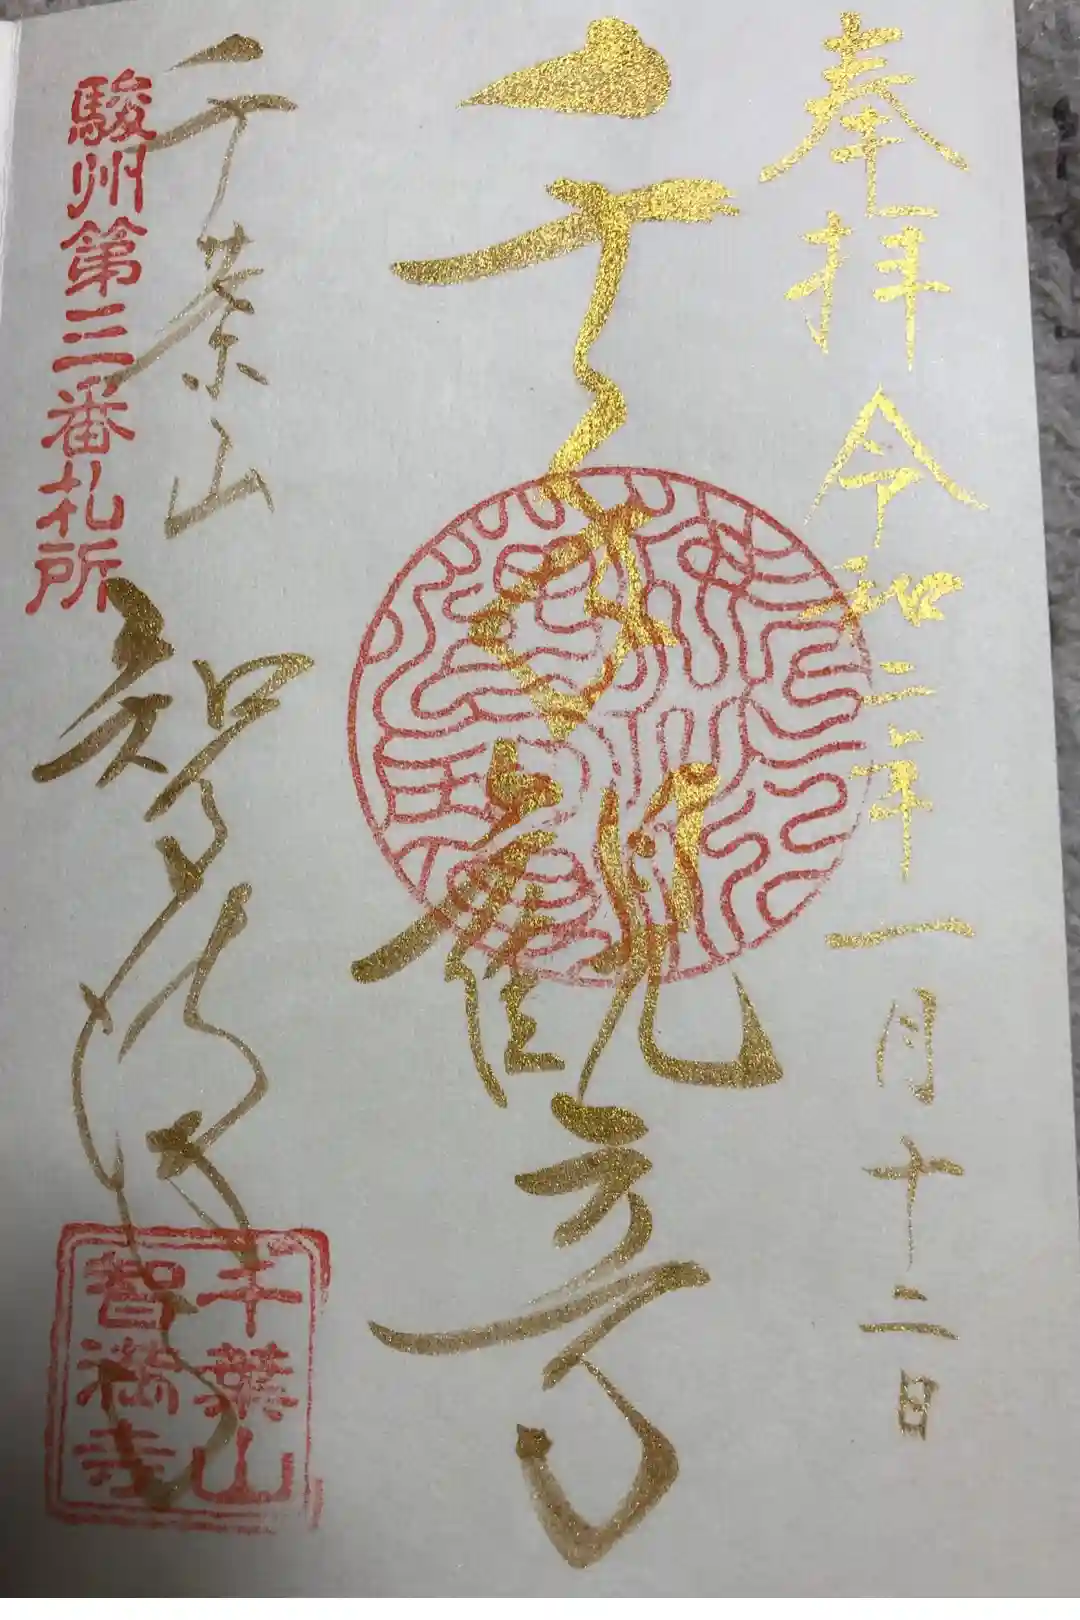 奉拝 令和三年一月十二日
千手観音
千葉山 智満寺
駿州第三番札所
千葉山
智満寺